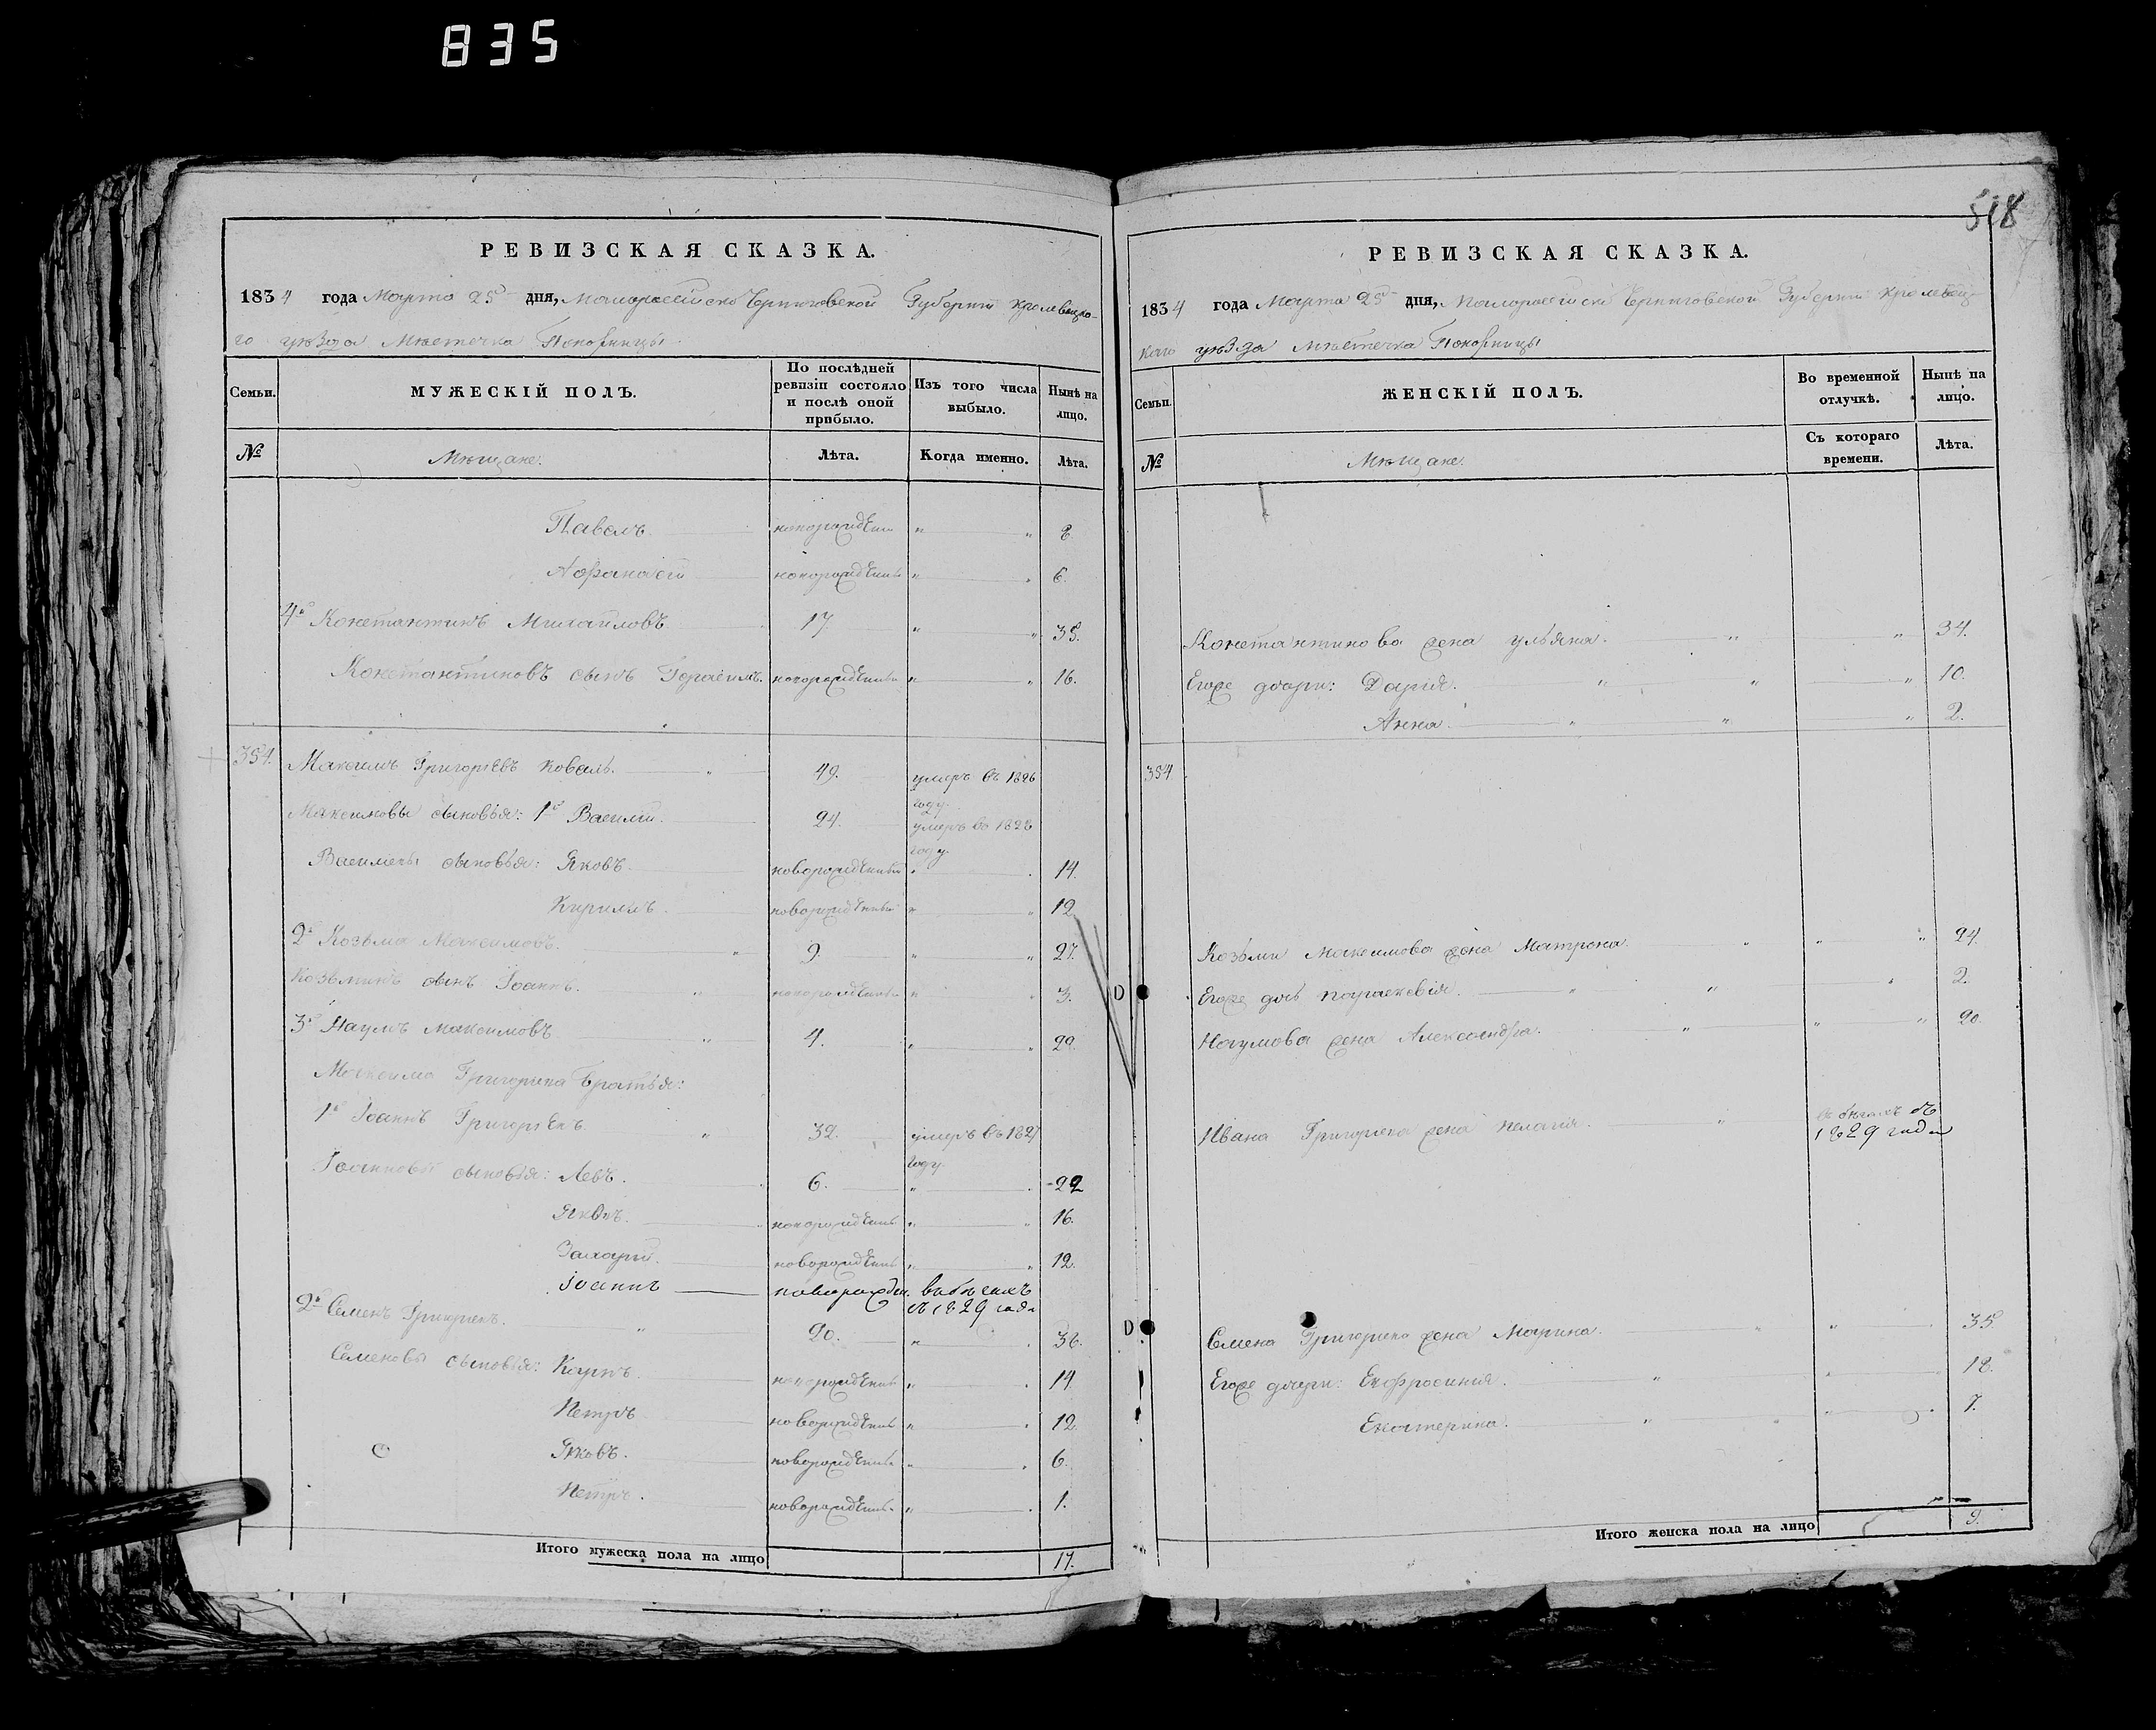 835
518
РЕВИЗСКАЯ СКАЗКА.
1834 года Марта 25 дня, Малороссійско Черниговской Губерніи Кролевецко-
го уѣзда Мѣстечка Понорницы
Семьи. МУЖЕСКІЙ ПОЛЪ. По послѣдней ревизіи состояло и послѣ оной прибыло. Изъ того числа выбыло. Нынѣ на лицо.
№ Мѣщане. Лѣта. Когда именно. Лѣта.
Павелъ новорожденъ " " 8
Афанасій новорожденъ " " 6.
4й Константинъ Михайловъ 17. " " 35.
Константиновъ сынъ Герасимъ. новорожденъ " " 16.
354. Максимъ Григорьевъ Коваль. " 49. умеръ въ 1826
году.
Максимовы сыновья: 1й Василій. 24. умеръ во 1828
году.
Васильевы сыновья: Яковъ. новорожденный " " 14.
Кирилъ. новорожденный " " 12
2й Козьма Максимовъ. " 9. " " 27.
Козьминъ сынъ Іоаннъ. " новорожденъ " " 3.
3й Наумъ Максимовъ " 4. " " 22.
Максима Григорьева братья:
1й Іоаннъ Григорьевъ. " 32. умеръ въ 1827
году.
Іоанновы сыновья: Левъ. 6. " " 22
Яковъ. новорожденъ " " 16.
Захарій. новорожденъ " " 12.
Іоаннъ новорожден. въ бѣгахъ
съ 1829 года
2й Семенъ Григорьевъ. " 20. " " 38.
Семеновы сыновья: Карпъ. новорожденъ " " 14
Петръ новорожденъ " " 12.
Яковъ. новорожденъ " " 6.
Петръ. новорожденъ. " " 1.
Итого мужеска пола на лицо 17.
РЕВИЗСКАЯ СКАЗКА.
1834 года Марта 25 дня, Малороссійско Черниговской Губерніи Кролевец-
каго уѣзда Мѣстечка Понорницы
Семьи. ЖЕНСКІЙ ПОЛЪ. Во временной отлучкѣ. Нынѣ на лицо.
№ Мѣщане. Съ котораго времени. Лѣта.
Константинова жена Ульяна. " " 34.
Егоже дочери: Дарія. " " " 10.
Анна. " " " 2.
354
Козьмы Максимова жена Матрона. " " " 24.
Егоже дочь Параскевія. " " " 2.
Наумова жена Александра. " " " 20.
Ивана Григорьева жена Пелагія. " въ бѣгахъ съ
1829 года
Семена Григорьева жена Марина. " " 35
Егоже дочери: Ефросинія. " " 18.
Екатерина. " " " 7.
Итого женска пола на лицо 9.